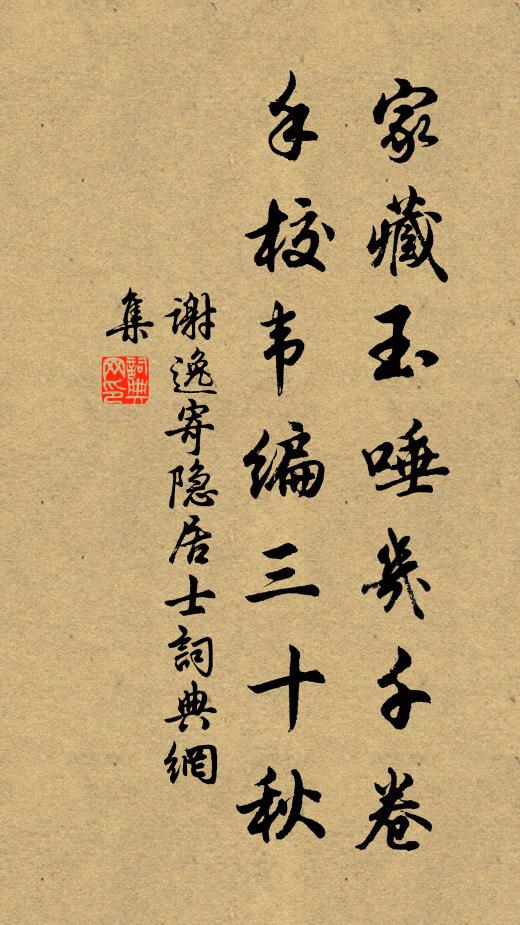 家藏玉唾幾千卷
手校韦编三十秋
谢逸寄隐居士詞典網
集
詞典网印